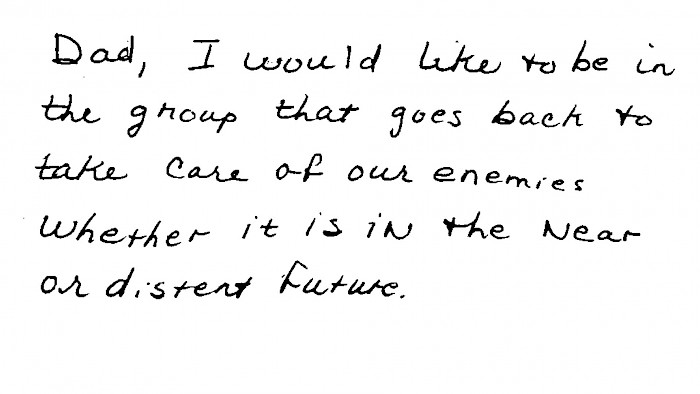 Dad, I would like to be in
the group that goes back to
take care of our enemies
whether it is in the near
or distent future.